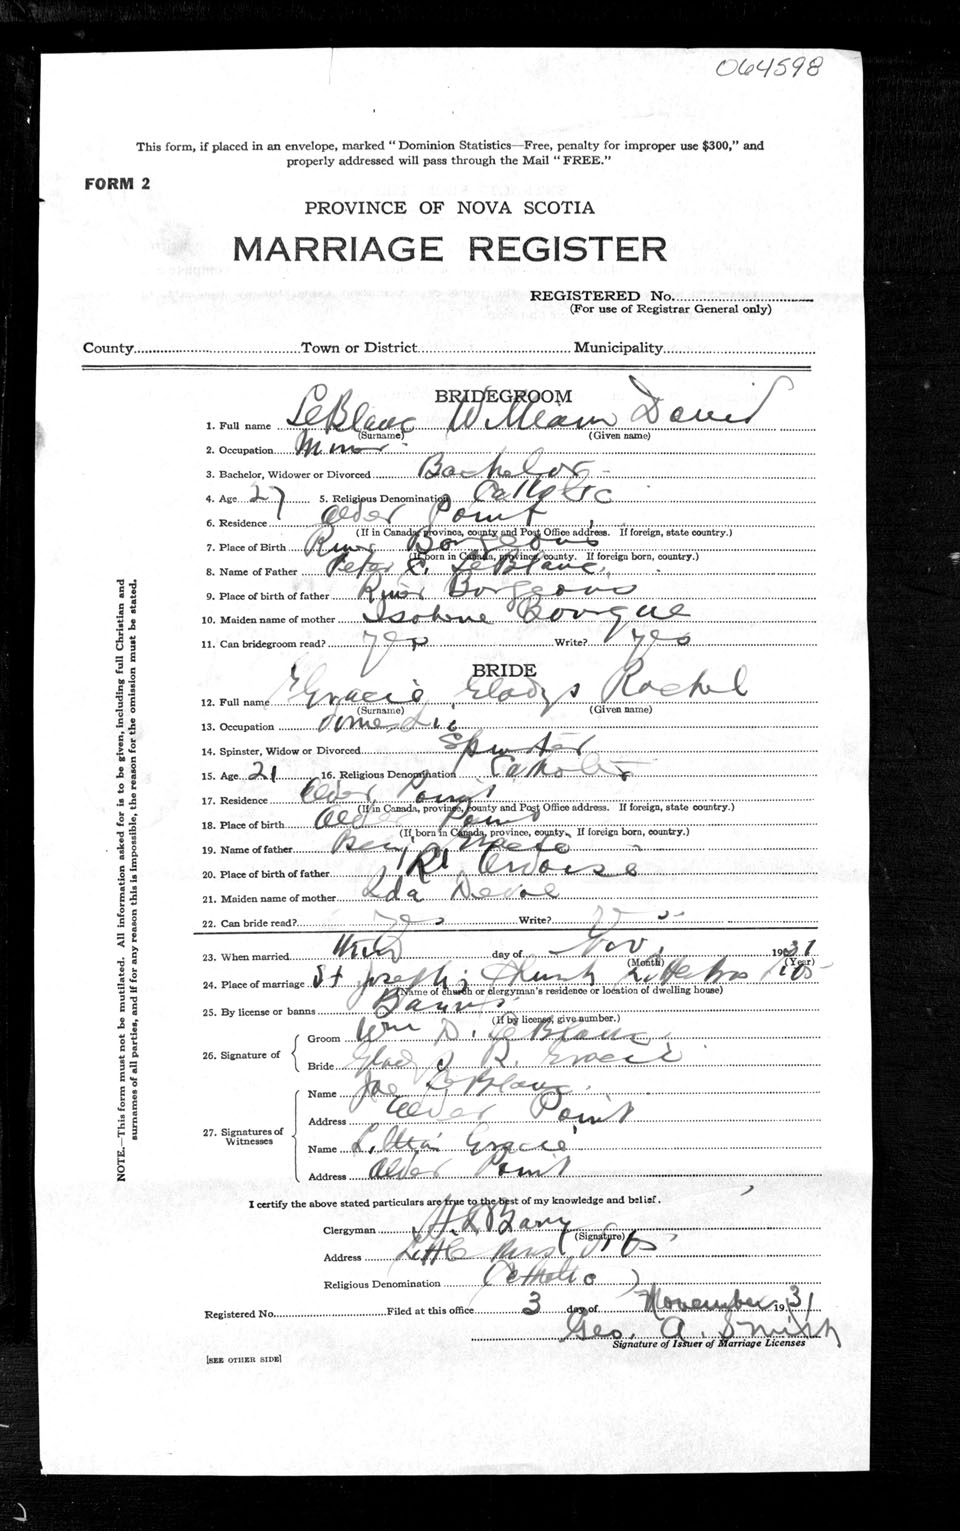 064598
This form, if placed in an envelope, marked "Dominion Statistics—Free, penalty for improper use $300," and
properly addressed will pass through the Mail "FREE."
FORM 2
PROVINCE OF NOVA SCOTIA
MARRIAGE REGISTER
REGISTERED No.
(For use of Registrar General only)
County Town or District Municipality
BRIDEGROOM
1. Full name LeBlanc William David
(Surname) (Given name)
2. Occupation Miner
3. Bachelor, Widower or Divorced Bachelor
4. Age 27 5. Religious Denomination Catholic
6. Residence Alder Point
(If in Canada, province, county and Post Office address. If foreign, state country.)
7. Place of Birth River Borgeous
(If born in Canada, province, county. If foreign born, country.)
8. Name of Father Peter LeBlanc
9. Place of birth of father River Borgeous
10. Maiden name of mother Bourque
11. Can bridegroom read? yes Write? yes
BRIDE
12. Full name Gracie Gladys Rachel
(Surname) (Given name)
13. Occupation Domestic
14. Spinster, Widow or Divorced Spinster
15. Age 21 16. Religious Denomination Catholic
17. Residence Alder Point
(If in Canada, province, county and Post Office address. If foreign, state country.)
18. Place of birth Alder Point
(If born in Canada, province, county. If foreign born, country.)
19. Name of father Benj Gracie
20. Place of birth of father
21. Maiden name of mother Ida
22. Can bride read? yes Write? yes
23. When married day of Nov. 1931
(Month) (Year)
24. Place of marriage St Joseph's Church Little Bras
(Name of church or clergyman's residence or location of dwelling house)
25. By license or banns Banns
(If by license, give number.)
26. Signature of
Groom Wm D. LeBlanc
Bride Gladys R. Gracie
27. Signatures of Witnesses
Name Joe LeBlanc
Address Alder Point
Name Gracie
Address Alder Point
I certify the above stated particulars are true to the best of my knowledge and belief.
Clergyman
(Signature)
Address Little Bras
Religious Denomination Catholic
Registered No. Filed at this office 3 day of November 1931
Geo. A. Smith
Signature of Issuer of Marriage Licenses
[SEE OTHER SIDE]
NOTE.—This form must not be mutilated. All information asked for is to be given, including full Christian and
surnames of all parties, and if for any reason this is impossible, the reason for the omission must be stated.